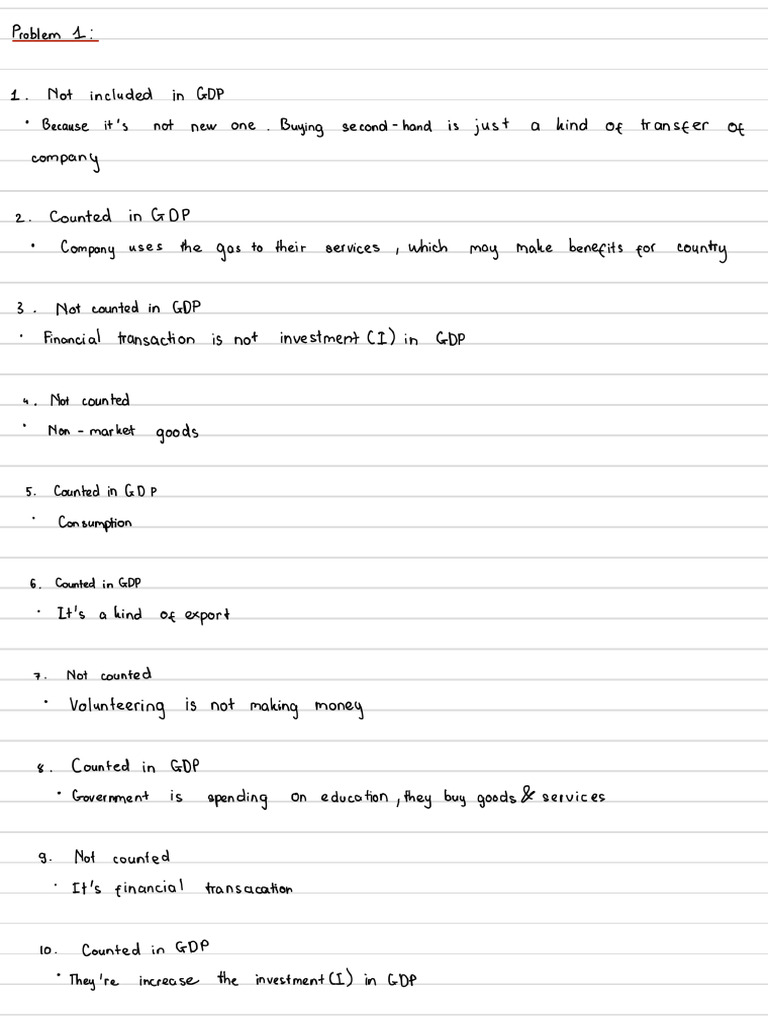 Problem 1:
1. Not included in GDP
• Because it's not new one. Buying second-hand is just a kind of transfer of
company
2. Counted in GDP
• Company uses the gas to their services, which may make benefits for country
3. Not counted in GDP
• Financial transaction is not investment (I) in GDP
4. Not counted
• Non-market goods
5. Counted in GDP
• Consumption
6. Counted in GDP
• It's a kind of export
7. Not counted
• Volunteering is not making money
8. Counted in GDP
• Government is spending on education, they buy goods & services
9. Not counted
• It's financial transacation
10. Counted in GDP
• They're increase the investment (I) in GDP